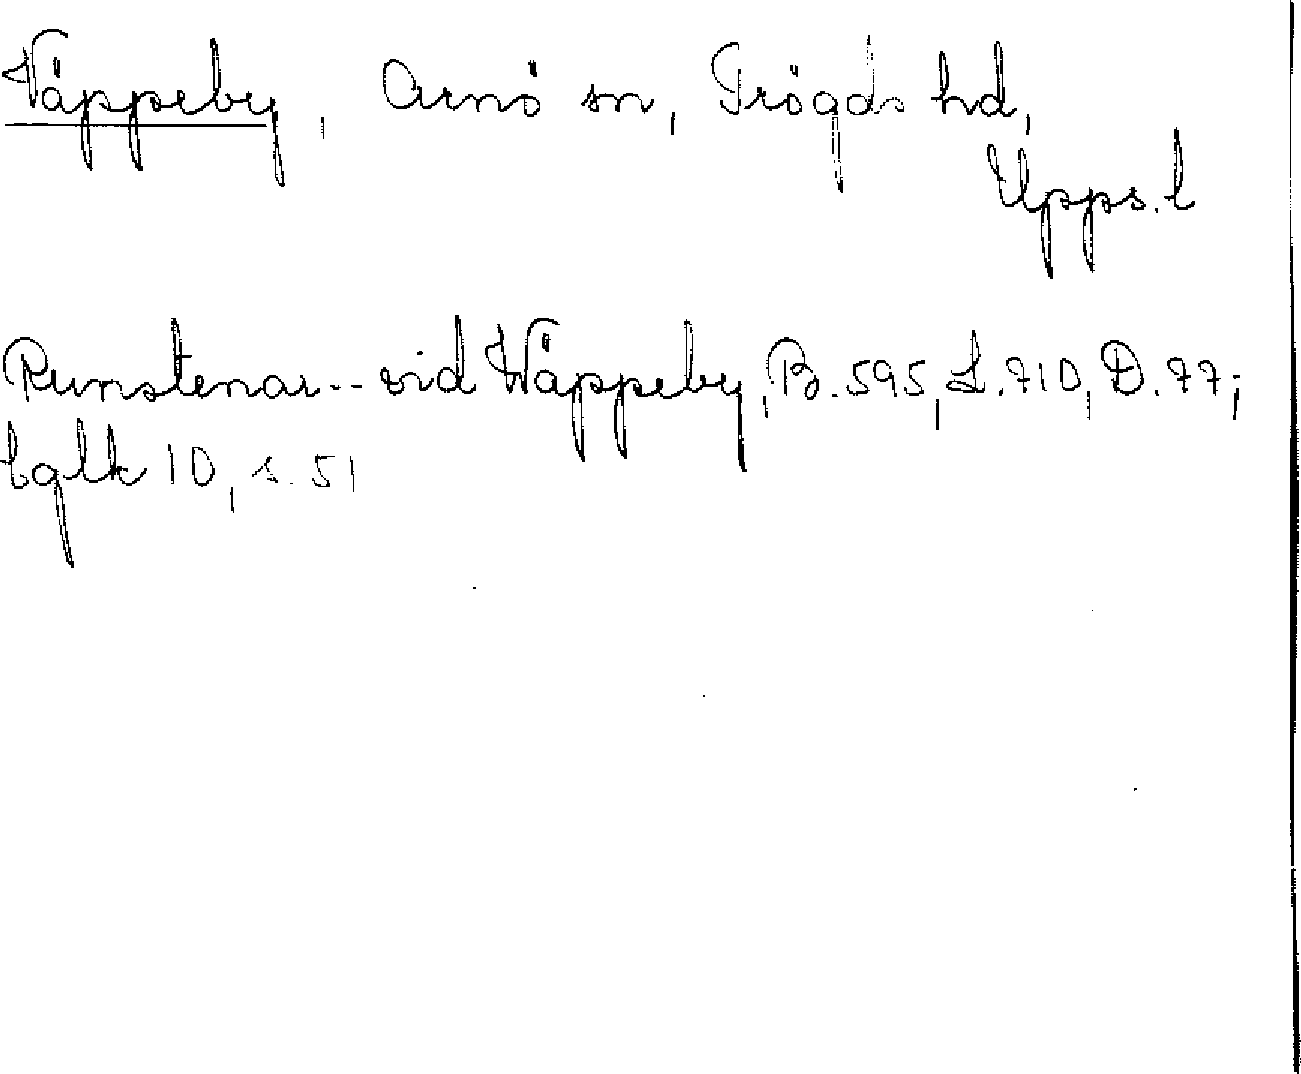 Väppeby, Arnö sn, Trögds hd,
Upps. l
Runstenar -- vid Wäppeby, B. 595, L. 710, D. 77;
bglk 10, s. 51